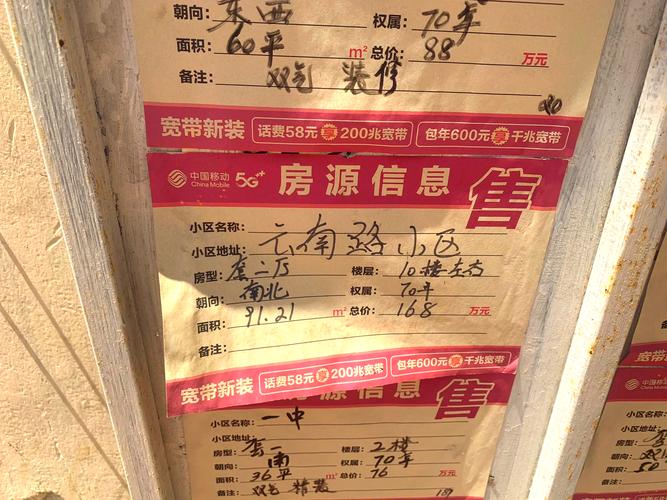 朝向：东西 权属：70年
面积：60平 m² 总价：88 万元
备注：双气 装修
宽带新装 话费58元享200兆宽带 包年600元享千兆宽带
中国移动 China Mobile 5G++ 房源信息 售
小区名称：
小区地址：云南路小区
房型：套二厅 楼层：10楼左右
朝向：南北 权属：70年
面积：91.21 m² 总价：168 万元
备注：
宽带新装 话费58元享200兆宽带 包年600元享千兆宽带
房源信息 售
小区名称：一中
小区地址：
房型：套一 楼层：2楼
朝向：南 权属：70年
面积：36平 m² 总价：76 万元
备注：双气 精装
中国移动 China Mobile
小区名称：
小区地址：
房型：
朝向：
面积：
备注：